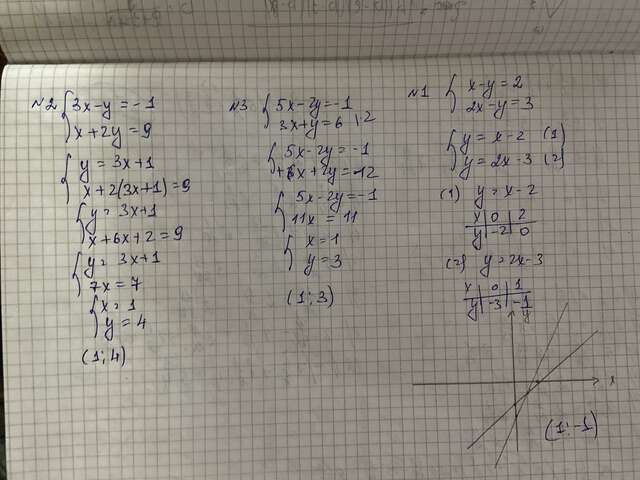 №2 { 3x-y = -1
x+2y = 9
{ y = 3x+1
x+2(3x+1) = 9
{ y = 3x+1
x+6x+2 = 9
{ y = 3x+1
7x = 7
{ x = 1
y = 4
(1; 4)
№3 { 5x-2y = -1
3x+y = 6 |·2
{ 5x-2y = -1
+6x+2y = 12
{ 5x-2y = -1
11x = 11
{ x = 1
y = 3
(1; 3)
№1 { x-y = 2
2x-y = 3
{ y = x-2 (1)
y = 2x-3 (2)
(1) y = x-2
x | 0 | 2
y | -2 | 0
(2) y = 2x-3
x | 0 | 1
y | -3 | -1
y
x
(1; -1)